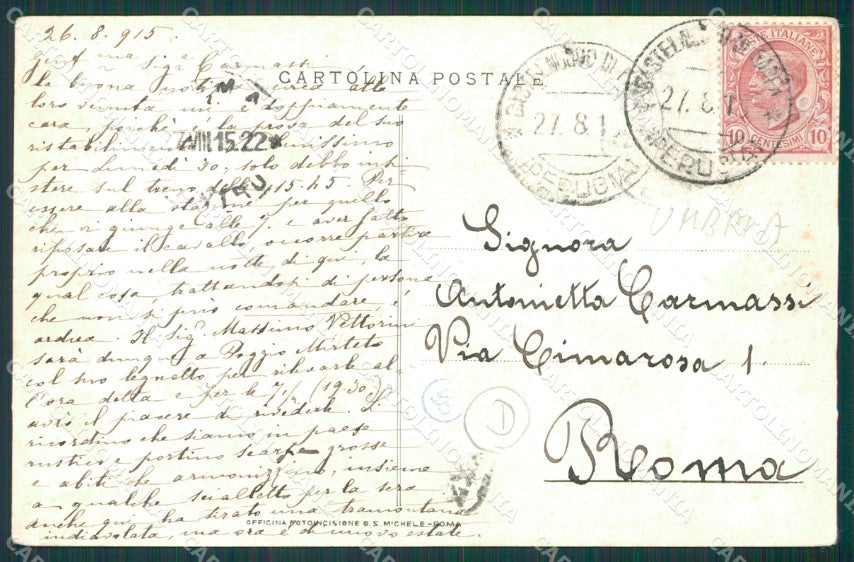 26.8.915.
Sigr Carmassi
la buona notizia circa alla
loro venuta mi è doppiamente
cara, perchè è la prova del suo
ristabilimento. Benissimo
per lunedì 30, solo debbo insi
stere sul treno delle 15.45. Per
essere alla stazione per quello
che vi giunge alle 7. e aver fatto
riposare il cavallo, occorre partire
proprio nella notte di qui la
qual cosa, trattandosi di persona
che non si può comandare è
ardua. Il Sigr Massimo Vettorini
sarà dunque a Poggio Mirteto
col suo legnetto per rilevarle al
l'ora detta e per le 7½ (19.30)
avrò il piacere di rivederle. Si
ricordino che siamo in paese
rustico e portino scarpe grosse
e abiti che armonizzino, insieme
a qualche scialletto per la sera
anche qui ha tirato una tramontana
indiavolata, ma ora è di nuovo estate.
CARTOLINA POSTALE
VIII.15.22
CASTELNUOVO DI
27.8.1
(PERUGIA)
CASTELNUOVO DI FARFA
27.8.1
(PERUGIA)
POSTE ITALIANE
10 CENTESIMI 10
UMBRIA
Signora
Antonietta Carmassi
Via Cimarosa 1
Roma
D
OFFICINA FOTOINCISIONE B. S. MICHELE-ROMA
CARTOLINOMANIA